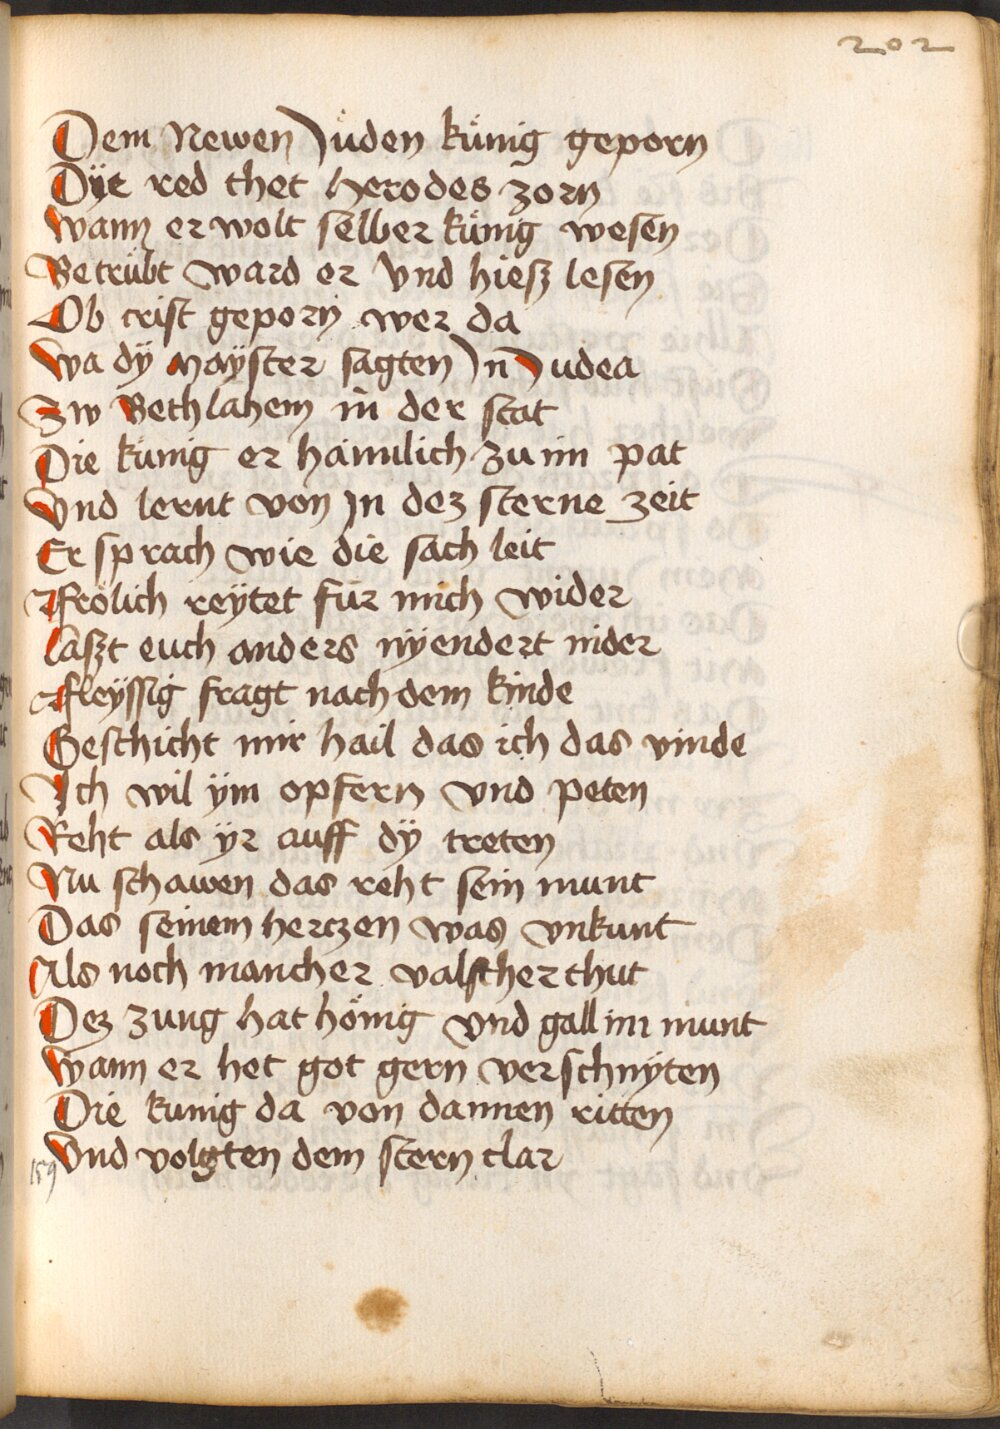 202
Dem Newen Juden künig geporn
Dÿe red thet herodes zorn
Wann er wolt selber künig wesen
Betrübt ward er vnd hiesz lesen
Ob crist geporn wer da
Wa dÿ maÿster sagten Jn Judea
Zw Bethlahem in der stat
Die künig er haimlich zu im pat
Vnd lernt von Jn dez sterne zeit
Er sprach wie die sach leit
Frölich reÿtet für mich wider
laszt euch anders nÿendert nider
Fleÿssig fragt nach dem kinde
Geschicht mir hail das ich das vinde
Ich wil ÿm opfern vnd peten
Reht als ÿr auff dÿ treten
Nu schawen das reht sein munt
Das seinem herczen was vnkunt
Als noch mancher valscher thut
Dez zung hat hönig vnd gall im munt
Wann er het got gern verschnÿten
Die kunig da von dannen ritten
Vnd volgten dem stern clar
159